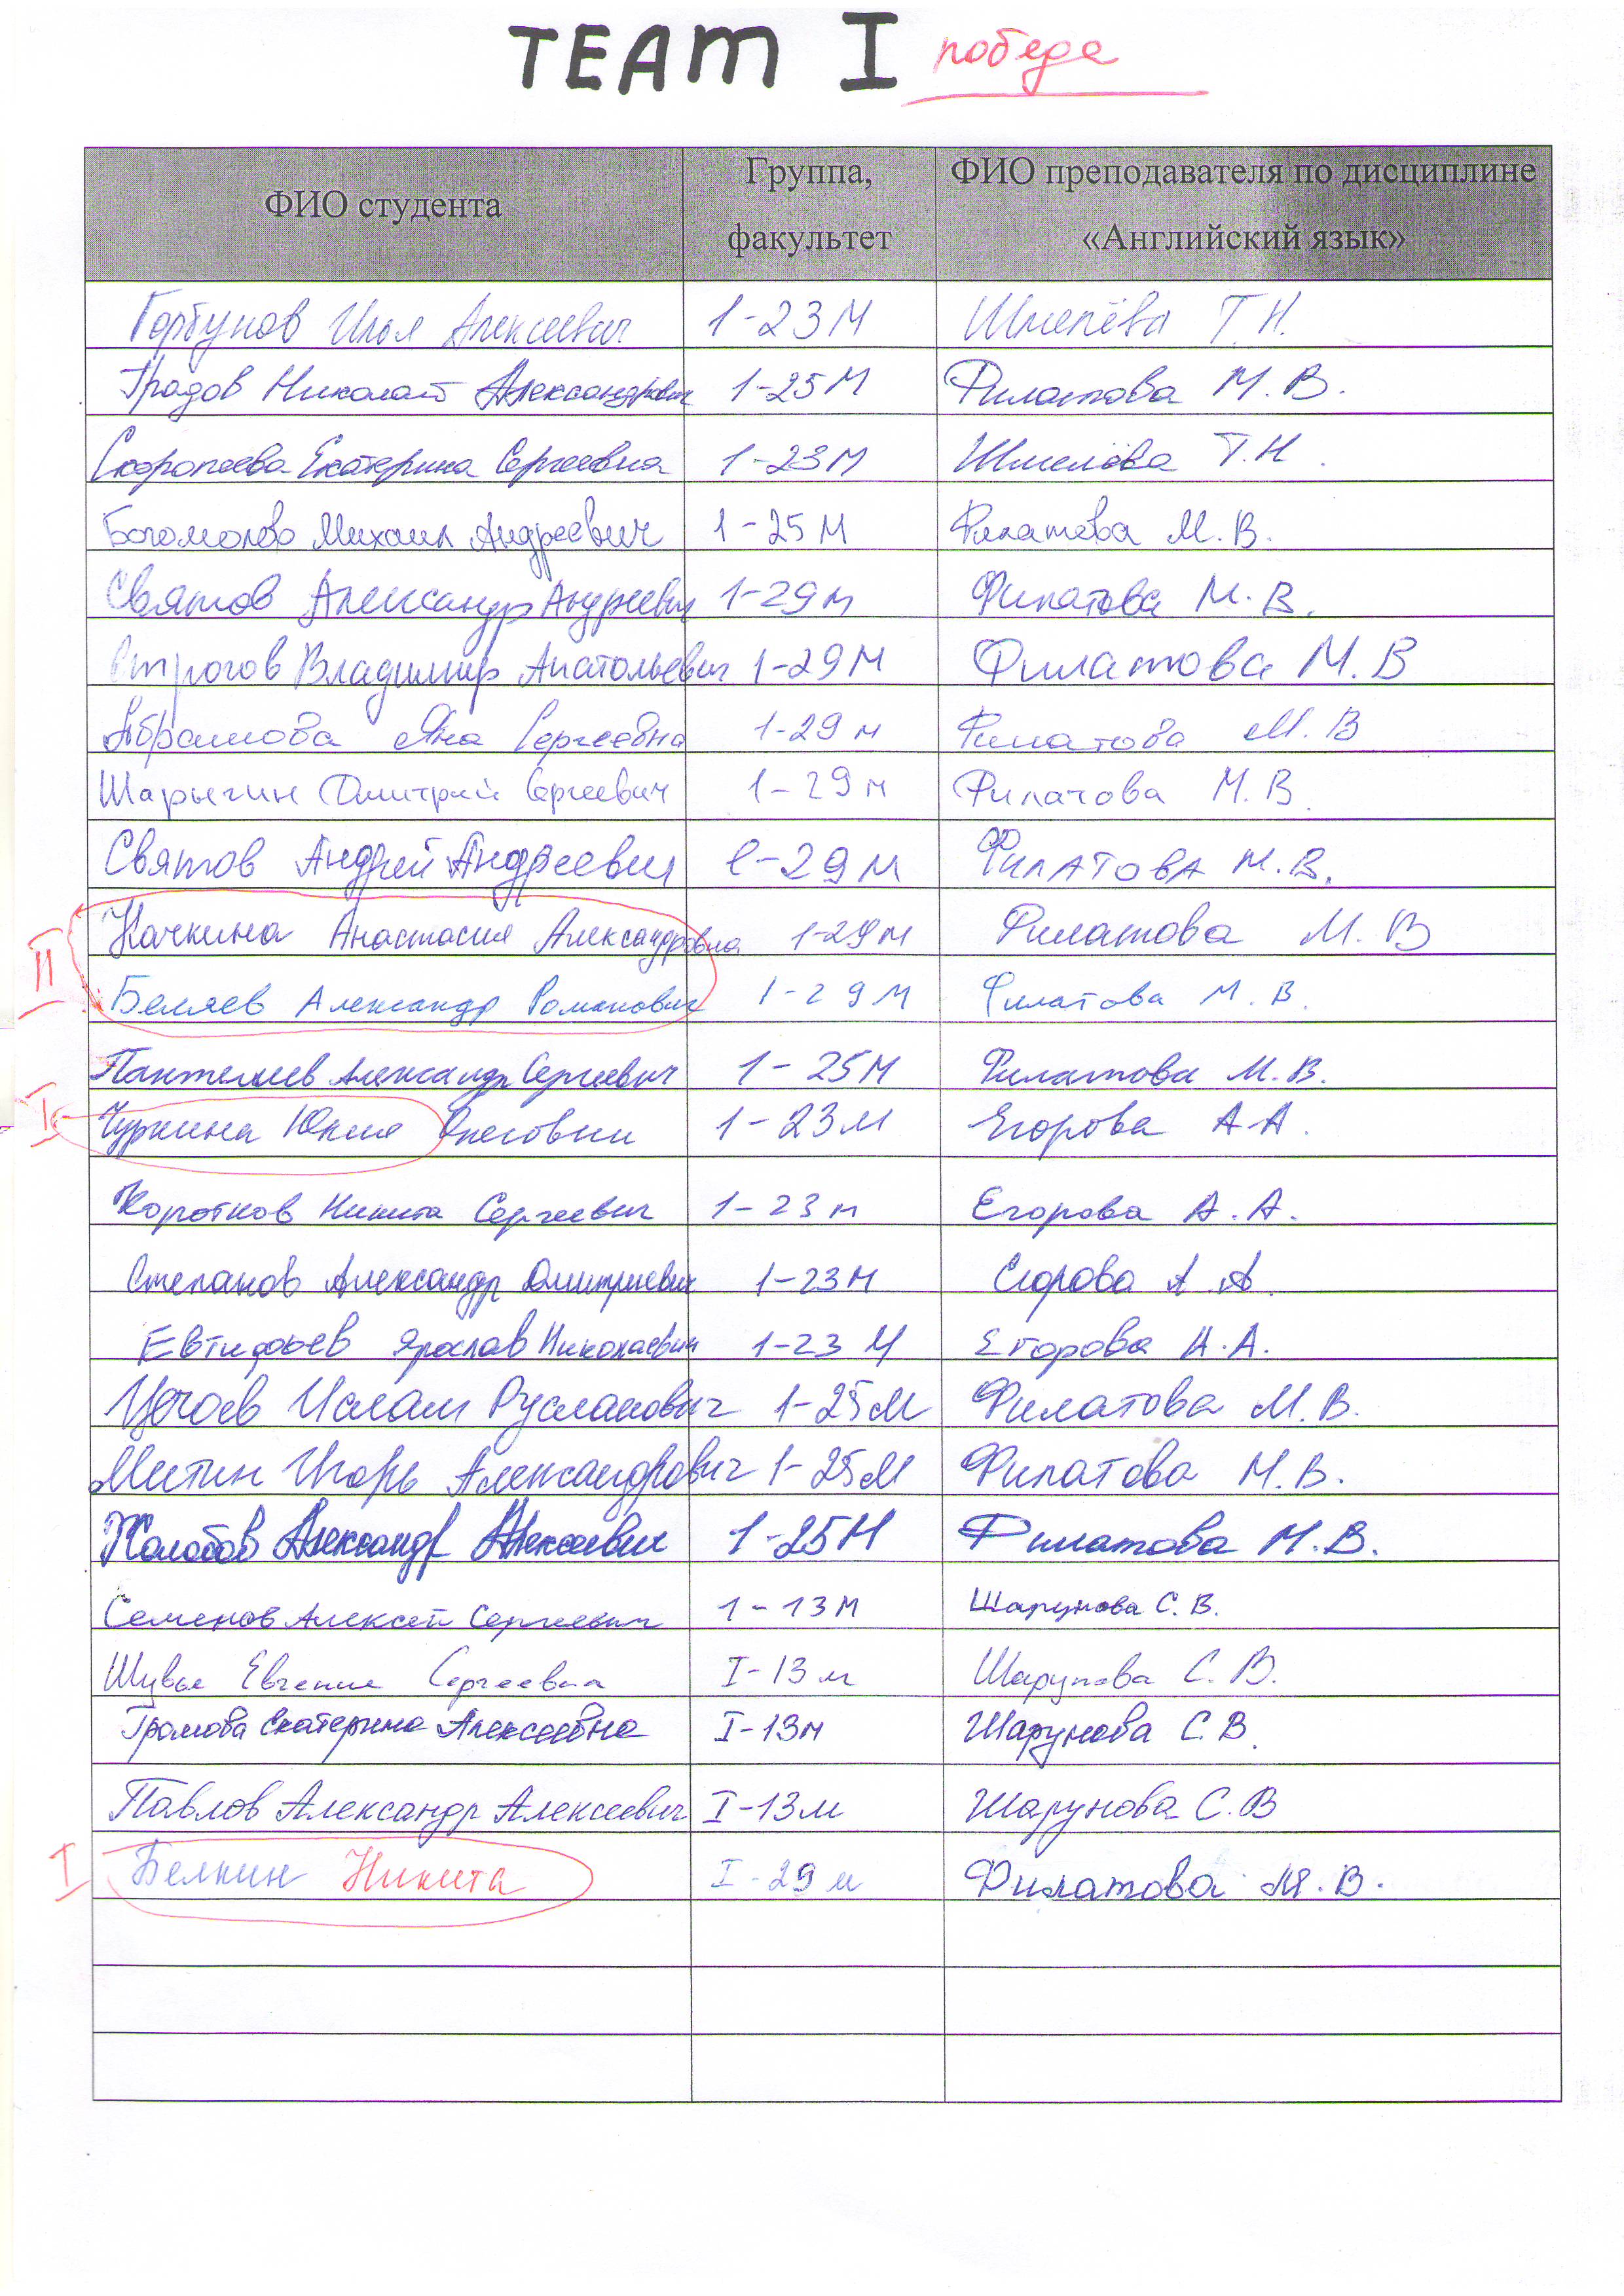 TEAM I победа
ФИО студента Группа, факультет ФИО преподавателя по дисциплине «Английский язык»
Горбунов Илья Алексеевич 1-23М Шмелёва Т.Н.
Градов Николай Александрович 1-25М Филатова М.В.
Скоропеева Екатерина Сергеевна 1-23М Шмелёва Т.Н.
Богомолов Михаил Андреевич 1-25М Филатова М.В.
Святов Александр Андреевич 1-29м Филатова М.В.
Строгов Владимир Анатольевич 1-29М Филатова М.В
Абрамова Яна Сергеевна 1-29м Филатова М.В
Шарыгин Дмитрий Сергеевич 1-29м Филатова М.В.
Святов Андрей Андреевич 1-29М Филатова М.В.
II Качкина Анастасия Александровна 1-29м Филатова М.В
Беляев Александр Романович 1-29М Филатова М.В.
Пантелеев Александр Сергеевич 1-25М Филатова М.В.
I Чуркина Юлия Олеговна 1-23М Егорова А.А.
Коротков Никита Сергеевич 1-23м Егорова А.А.
Степанов Александр Дмитриевич 1-23М Егорова А.А.
Евтифьев Ярослав Николаевич 1-23М Егорова А.А.
Ислам Русланович 1-25М Филатова М.В.
Митин Игорь Александрович 1-25М Филатова М.В.
Александр Алексеевич 1-25М Филатова М.В.
Семенов Алексей Сергеевич 1-13М Шарунова С.В.
Евгения Сергеевна I-13м Шарунова С.В.
Громова Екатерина Алексеевна I-13м Шарунова С.В.
Павлов Александр Алексеевич I-13м Шарунова С.В
I Белкин Никита I-29м Филатова М.В.